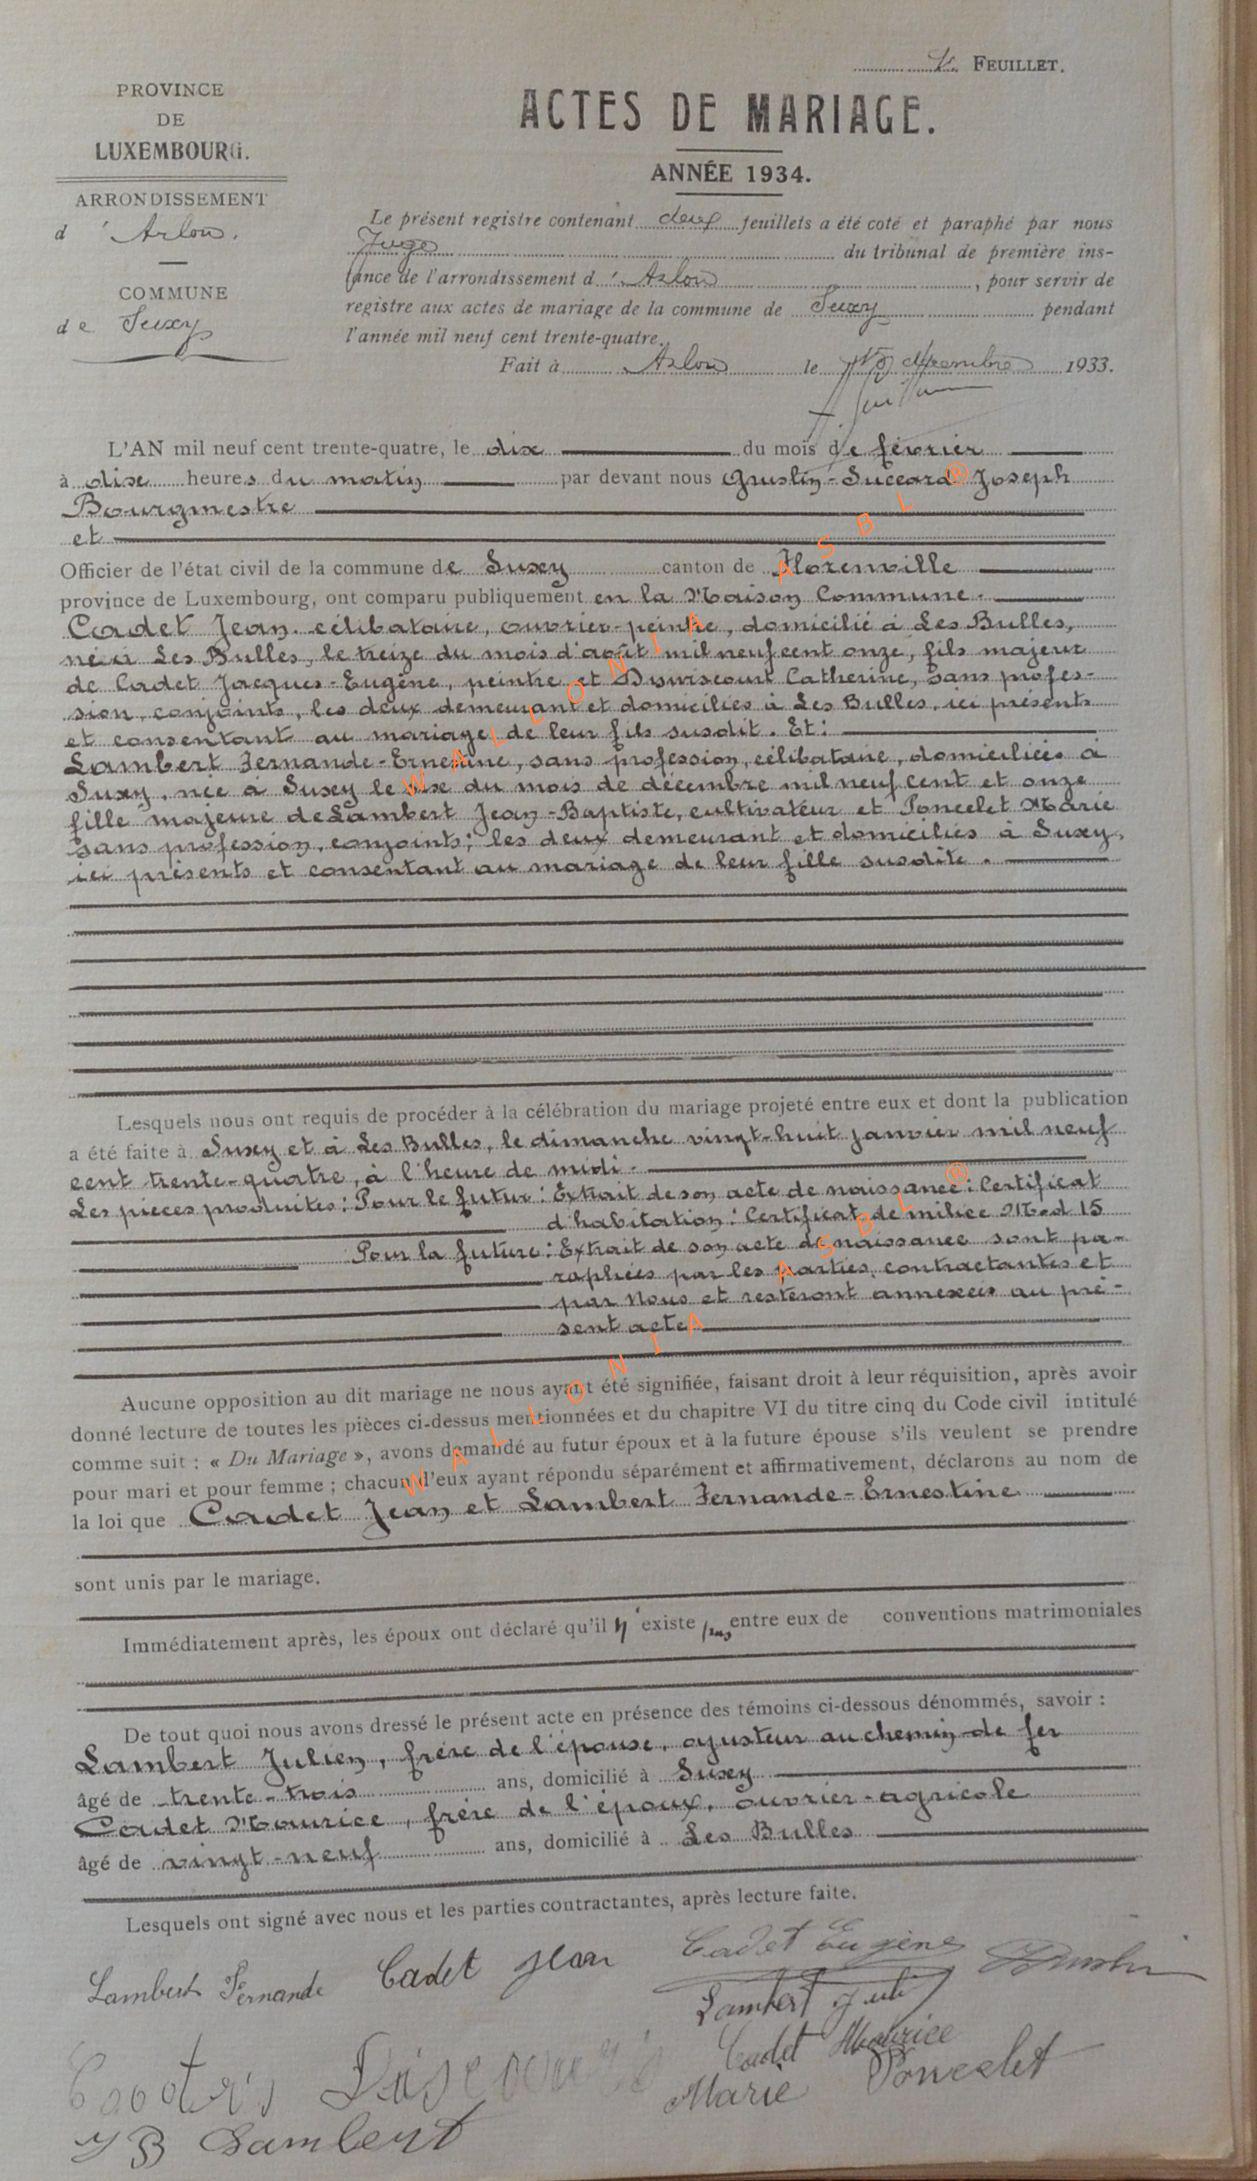 1r. FEUILLET.
PROVINCE
DE
LUXEMBOURG.
ARRONDISSEMENT
d'Arlon.
COMMUNE
de Suxy
ACTES DE MARIAGE.
ANNÉE 1934.
Le présent registre contenant deux feuillets a été coté et paraphé par nous
Juge du tribunal de première ins-
tance de l'arrondissement d'Arlon, pour servir de
registre aux actes de mariage de la commune de Suxy pendant
l'année mil neuf cent trente-quatre.
Fait à Arlon le décembre 1933.
L'AN mil neuf cent trente-quatre, le dix du mois de février
à dix heures du matin par devant nous Joseph
Bourgmestre
et
Officier de l'état civil de la commune de Suxy canton de Florenville
province de Luxembourg, ont comparu publiquement en la Maison Commune.
Cadet Jean. célibataire, ouvrier-peintre, domicilié à Les Bulles,
né à Les Bulles, le treize du mois d'août mil neuf cent onze, fils majeur
de Cadet Jacques-Eugène, peintre et Catherine, sans profes-
sion, conjoints, les deux demeurant et domiciliés à Les Bulles, ici présents
et consentant au mariage de leur fils susdit. Et:
Lambert Fernande-Ernestine, sans profession, célibataire, domiciliée à
Suxy. née à Suxy le six du mois de décembre mil neuf cent et onze
fille majeure de Lambert Jean-Baptiste, cultivateur et Poncelet Marie
sans profession, conjoints; les deux demeurant et domiciliés à Suxy,
ici présents et consentant au mariage de leur fille susdite.
Lesquels nous ont requis de procéder à la célébration du mariage projeté entre eux et dont la publication
a été faite à Suxy et à Les Bulles, le dimanche vingt-huit janvier mil neuf
cent trente-quatre, à l'heure de midi.
Les pièces produites: Pour le futur: Extrait de son acte de naissance: Certificat
d'habitation: Certificat de milice Mod 15
Pour la future: Extrait de son acte de naissance sont pa-
raphées par les parties contractantes et
par Nous et resteront annexées au pré-
sent acte
Aucune opposition au dit mariage ne nous ayant été signifiée, faisant droit à leur réquisition, après avoir
donné lecture de toutes les pièces ci-dessus mentionnées et du chapitre VI du titre cinq du Code civil intitulé
comme suit : « Du Mariage », avons demandé au futur époux et à la future épouse s'ils veulent se prendre
pour mari et pour femme ; chacun d'eux ayant répondu séparément et affirmativement, déclarons au nom de
la loi que Cadet Jean et Lambert Fernande-Ernestine
sont unis par le mariage.
Immédiatement après, les époux ont déclaré qu'il n'existe pas entre eux de conventions matrimoniales
De tout quoi nous avons dressé le présent acte en présence des témoins ci-dessous dénommés, savoir :
Lambert Julien, frère de l'épouse, ajusteur au chemin de fer
âgé de trente-trois ans, domicilié à Suxy
Cadet Maurice, frère de l'époux, ouvrier-agricole
âgé de vingt-neuf ans, domicilié à Les Bulles
Lesquels ont signé avec nous et les parties contractantes, après lecture faite.
Lambert Fernande Cadet Jean Cadet Eugène
Lambert
Cadet Maurice
Marie Poncelet
J B Lambert
WALLONIA ASBL®
WALLONIA ASBL®